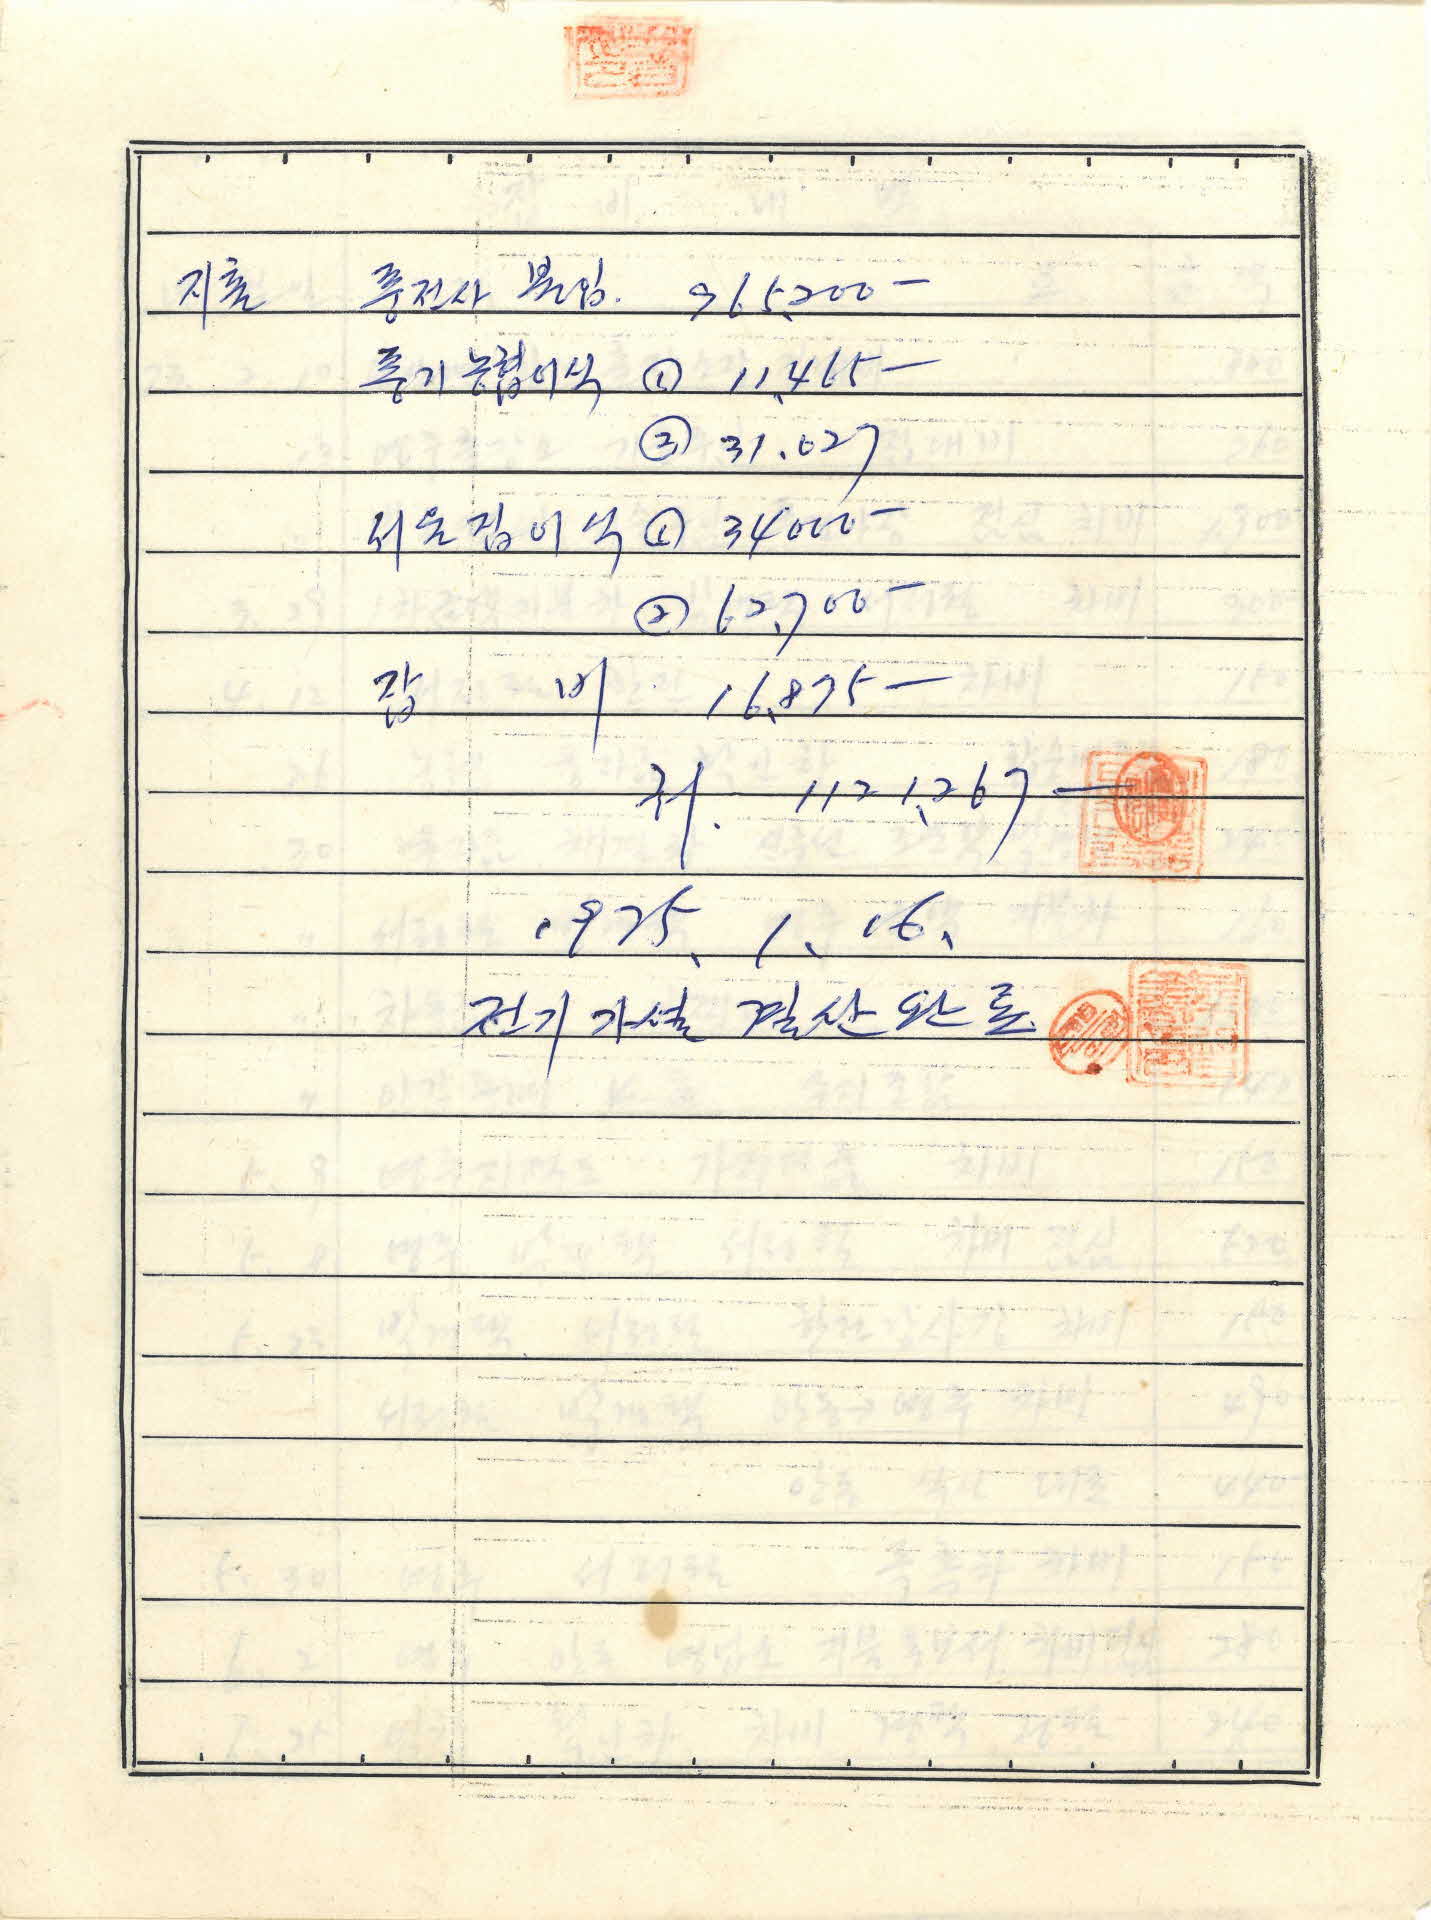 지출 풍전사 불입. 965,200-
풍기농협이식 ① 11,465-
② 31.027
서울집이식 ① 34000-
② 62,700-
잡 비 16,875-
계. 1121,267-
1975. 1. 16.
전기가설 결산완료.